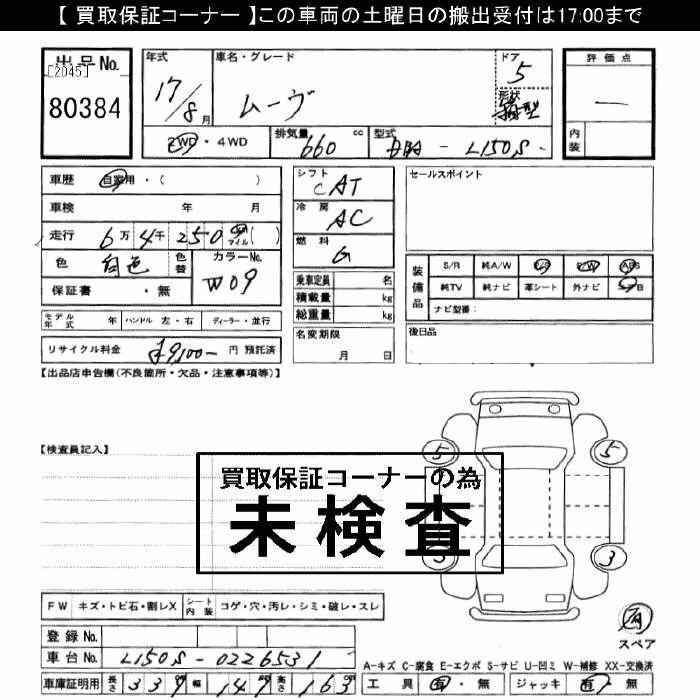 【 買取保証コーナー 】この車両の土曜日の搬出受付は17:00まで
出品No.
[2045]
80384
年式
17/8月
車名・グレード
ムーヴ
ドア
5
形状
箱型
2WD・4WD
排気量
660 cc
型式
DBA - L150S
評価点
―
内装
車歴 自家用・( )
車検 年 月
走行 6万4千250 マイル( )
色 白色 色替
カラーNo.
W09
保証書 ・無
モデル年式 年 ハンドル 左・右 ディーラー・並行
リサイクル料金 ¥9,100- 円 預託済
シフト
CAT
冷房
AC
燃料
G
乗車定員 名
積載量 kg
総重量 kg
名変期限
月 日
セールスポイント
装備品
S/R 純A/W P/S P/W ABS
純TV 純ナビ 革シート 外ナビ S/B
ナビ型番:
後日品
【出品店申告欄(不良箇所・欠品・注意事項等)】
【検査員記入】
買取保証コーナーの為
未検査
5
5
3
3
FW キズ・トビ石・割レX シート内装 コゲ・穴・汚レ・シミ・破レ・スレ
登録No.
車台No. L150S-0226531
車庫証明用 長さ 339 幅 147 高さ 163
有
スペア
A-キズ C-腐食 E-エクボ S-サビ U-凹ミ W-補修 XX-交換済
工具 有・無 ジャッキ 有・無